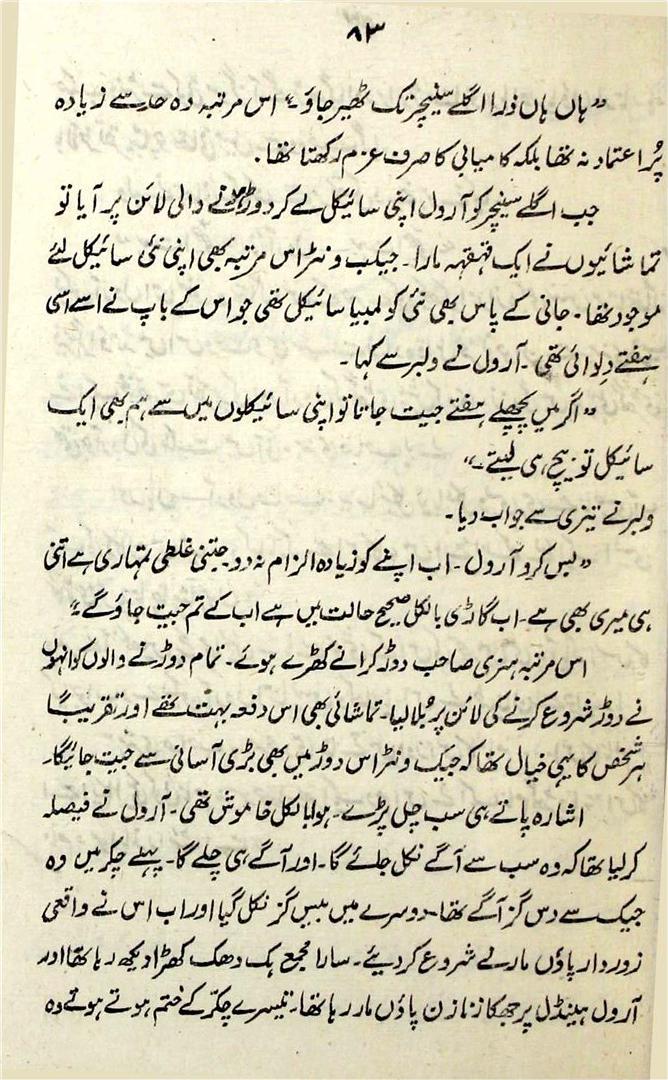 ۸۳
"ہاں ہاں ذرا اگلے سنیچر تک ٹھیر جاؤ۔" اس مرتبہ وہ حد سے زیادہ
پُر اعتماد نہ تھا بلکہ کامیابی کا صرف عزم رکھتا تھا.
جب اگلے سنیچر کو آرول اپنی سائیکل لے کر دوڑنے والی لائن پر آیا تو
تماشائیوں نے ایک قہقہہ مارا۔ جیکب ونٹر اس مرتبہ بھی اپنی نئی سائیکل لئے
موجود تھا۔ جانی کے پاس بھی نئی کولمبیا سائیکل تھی جو اس کے باپ نے اسے اسی
ہفتے دِلوائی تھی۔ آرول نے ولبر سے کہا۔
"اگر میں پچھلے ہفتے جیت جاتا تو اپنی سائیکلوں میں سے ہم بھی ایک
سائیکل تو بیچ ہی لیتے۔"
ولبر نے تیزی سے جواب دیا۔
"بس کرو آرول۔ اب اپنے کو زیادہ الزام نہ دو جتنی غلطی تمہاری ہے اتنی
ہی میری بھی ہے۔ اب گاڑی بالکل صحیح حالت میں ہے اب کے تم جیت جاؤ گے۔"
اس مرتبہ ہنری صاحب دوڑ کرانے کھڑے ہوئے۔ تمام دوڑنے والوں کو انہوں
نے دوڑ شروع کرنے کی لائن پر بُلا لیا۔ تماشائی بھی اس دفعہ بہت تھے اور تقریباً
ہر شخص کا یہی خیال تھا کہ جیک ونٹر اس دوڑ میں بھی بڑی آسانی سے جیت جائیگا۔
اشارہ پاتے ہی سب چل پڑے۔ ہوا بالکل خاموش تھی۔ آرول نے فیصلہ
کر لیا تھا کہ وہ سب سے آگے نکل جائے گا۔ اور آگے ہی چلے گا۔ پہلے چکر میں وہ
جیک سے دس گز آگے تھا۔ دوسرے میں بیس گز نکل گیا اور اب اس نے واقعی
زوردار پاؤں مارنے شروع کر دیئے۔ سارا مجمع ہک دھک کھڑا دیکھ رہا تھا اور
آرول ہینڈل پر جھکا زنازن پاؤں مار رہا تھا۔ تیسرے چکّر کے ختم ہوتے ہوتے وہ